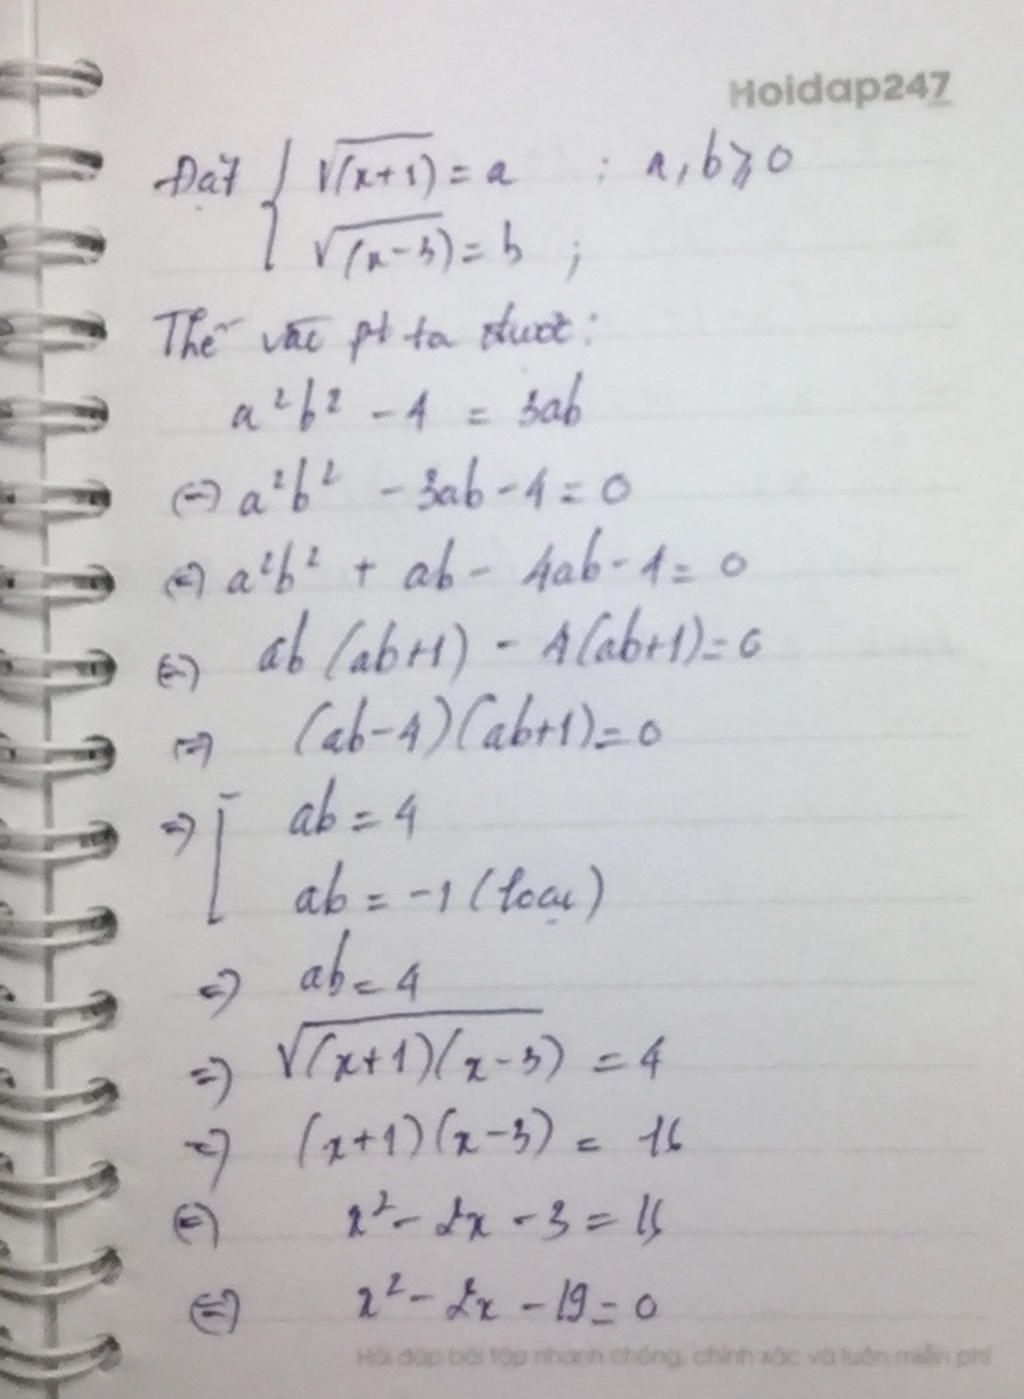 Hoidap247
Đặt { √(x+1) = a ; a, b ⩾ 0
√(x-3) = b ;
Thế vào pt ta được:
a²b² - 4 = 3ab
(=) a²b² - 3ab - 4 = 0
(=) a²b² + ab - 4ab - 4 = 0
(=) ab(ab+1) - 4(ab+1) = 0
=) (ab-4)(ab+1) = 0
=) [ ab = 4
ab = -1 (loại)
=) ab = 4
=) √(x+1)(x-3) = 4
=) (x+1)(x-3) = 16
(=) x² - 2x - 3 = 16
(=) x² - 2x - 19 = 0
Hỏi đáp bài tập nhanh chóng, chính xác và luôn miễn phí